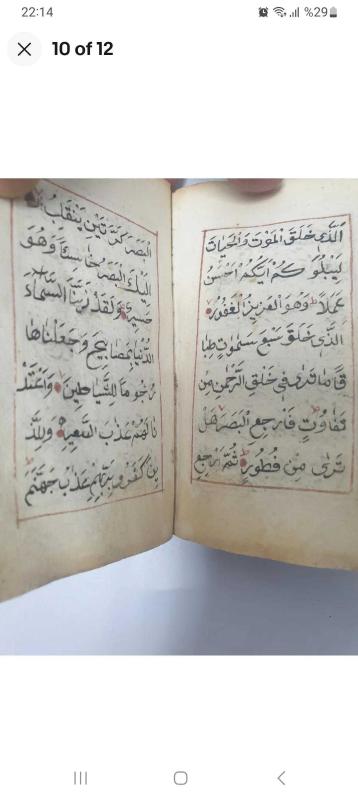 22:14
%29
10 of 12
الَّذِي خَلَقَ الْمَوْتَ وَالْحَيَاتَ
لِيَبْلُوَكُمْ اَيُّكُمْ اَحْسَنُ
عَمَلًا وَهُوَ الْعَزِيزُ الْغَفُورُ
الَّذِي خَلَقَ سَبْعَ سَمٰوَاتٍ طِبَا
قًا مَا تَرٰى فِي خَلْقِ الرَّحْمٰنِ مِنْ
تَفَاوُتٍ فَارْجِعِ الْبَصَرَ هَلْ
تَرٰى مِنْ فُطُورٍ ثُمَّ ارْجِعِ
الْبَصَرَ كَرَّتَيْنِ يَنْقَلِبْ
اِلَيْكَ الْبَصَرُ خَاسِئًا وَهُوَ
حَسِيرٌ وَلَقَدْ زَيَّنَّا السَّمَاءَ
الدُّنْيَا بِمَصَابِيحَ وَجَعَلْنَاهَا
رُجُومًا لِلشَّيَاطِينِ وَاَعْتَدْ
نَا لَهُمْ عَذَبَ السَّعِيرِ وَلِلَّذِ
ينَ كَفَرُوا بِرَبِّهِمْ عَذَبُ جَهَنَّمَ